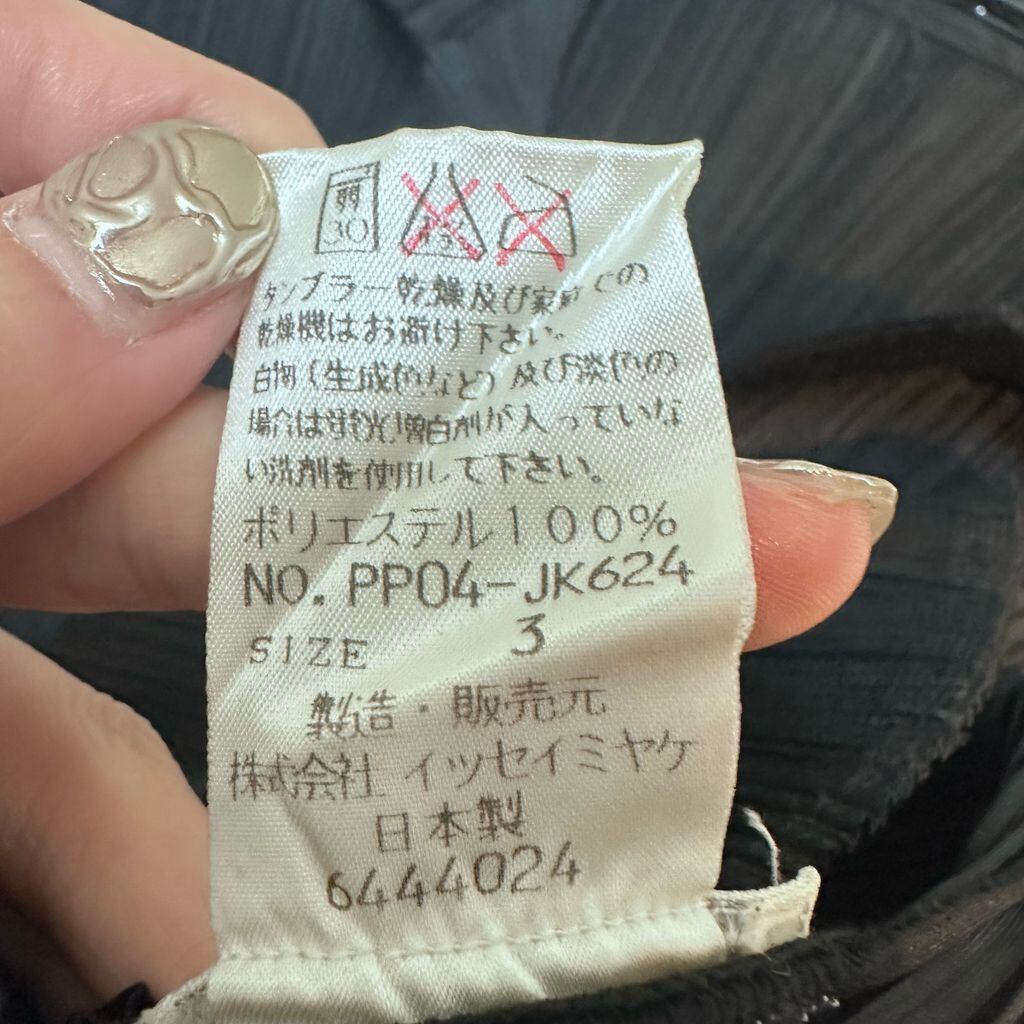 弱
30
タンブラー乾燥及び家庭での
乾燥機はお避け下さい。
白物(生成色など)及び淡色の
場合は蛍光増白剤が入っていな
い洗剤を使用して下さい。
ポリエステル100%
NO. PP04-JK624
SIZE 3
製造・販売元
株式会社 イッセイミヤケ
日本製
6444024